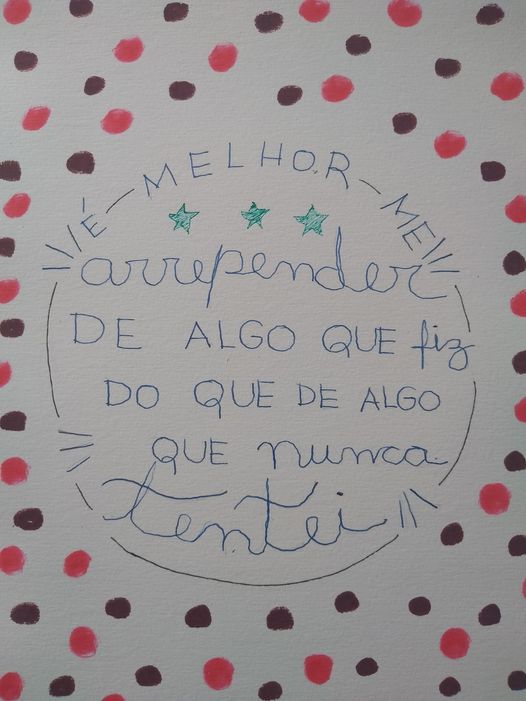 É MELHOR ME
arrepender
DE ALGO QUE fiz
DO QUE DE ALGO
QUE nunca
Tentei